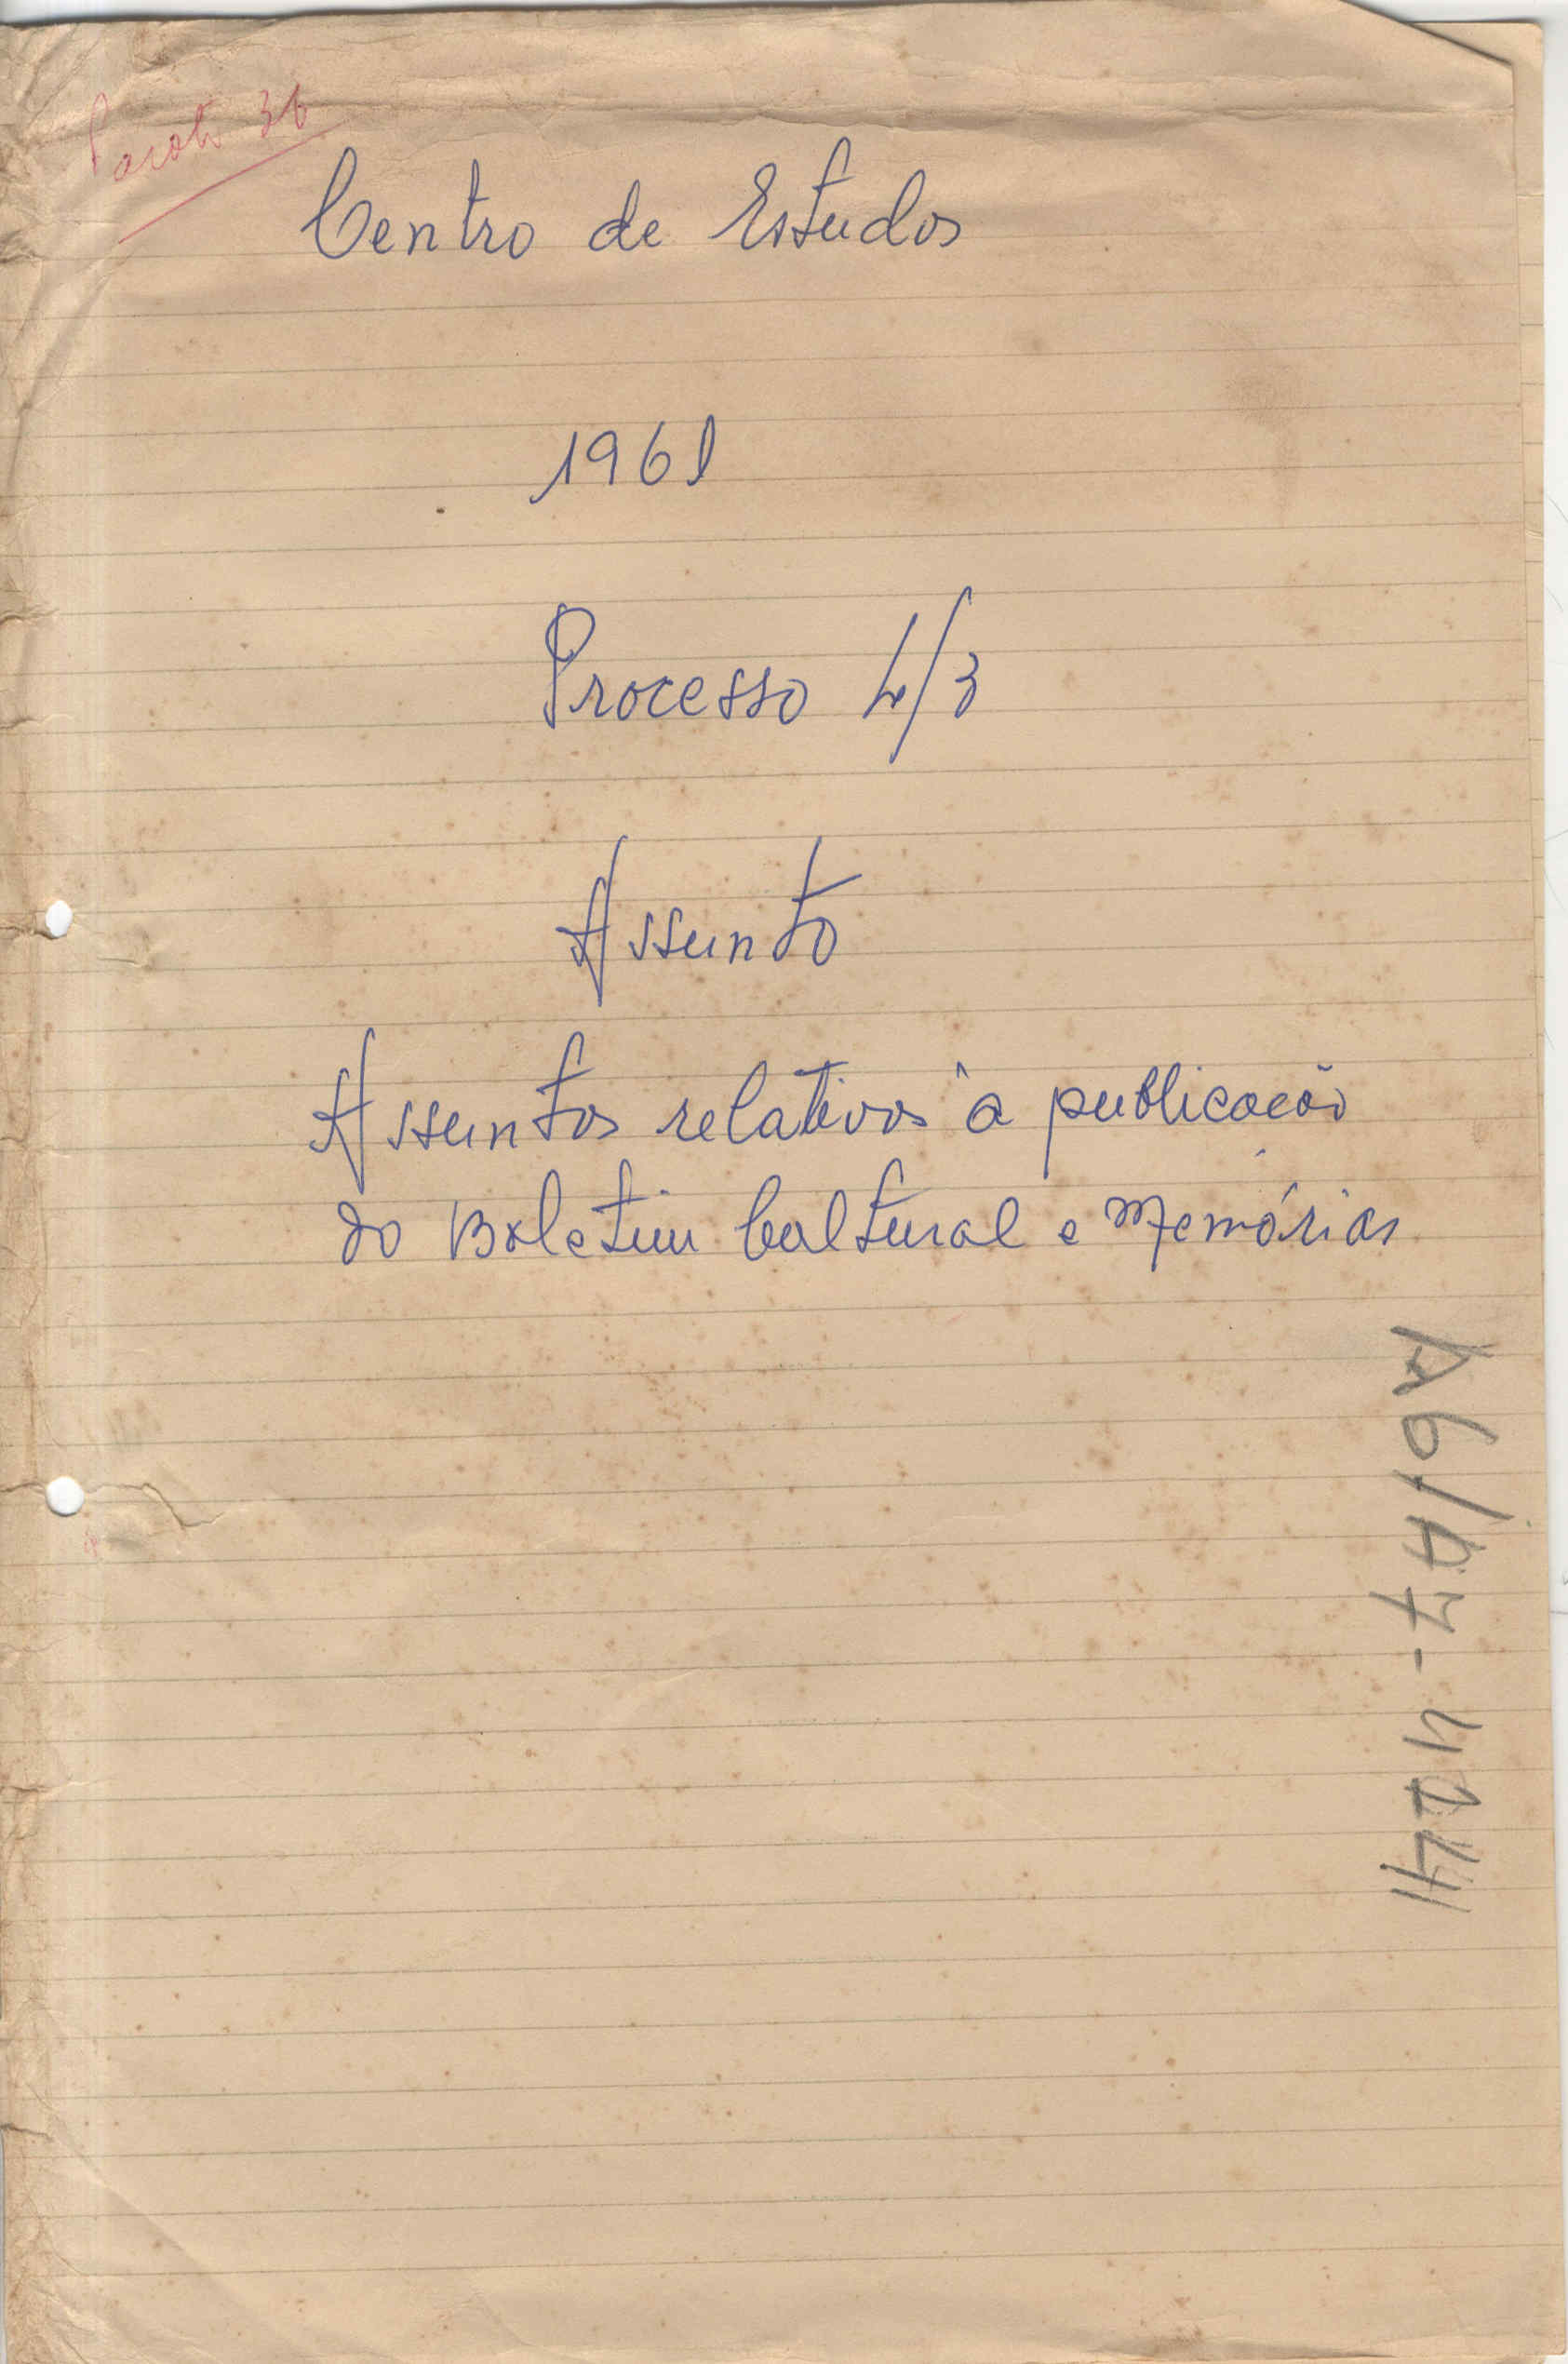 Pacote 36
Centro de Estudos
1961
Processo 4/3
Assunto
Assuntos relativos à publicação
do Boletim Cultural e Memórias
A6/A7-4